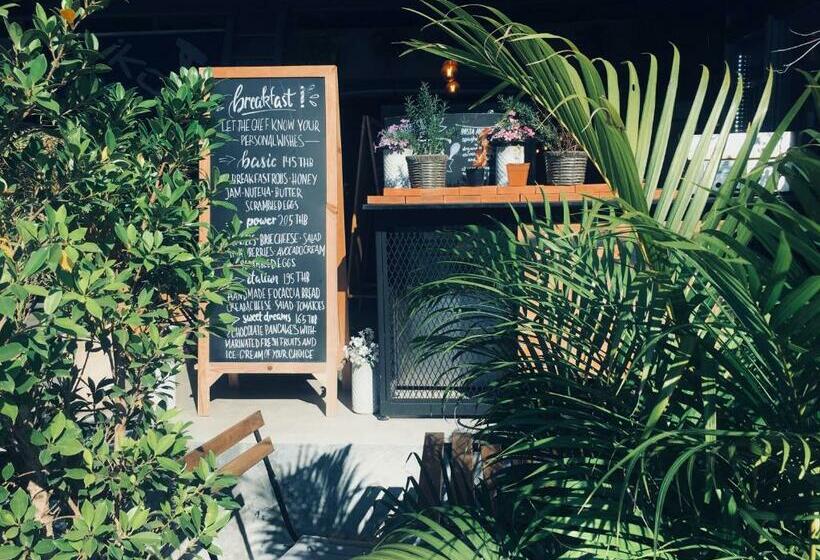 breakfast!
LET THE CHEF KNOW YOUR
PERSONAL WISHES
basic 145 THB
BREAKFAST ROLLS · HONEY
JAM · NUTELLA · BUTTER
SCRAMBLED EGGS
power 205 THB
BRIE CHEESE · SALAD
BERRIES · AVOCADO CREAM
EGGS
italian 195 THB
HANDMADE FOCACCIA BREAD
CREAM CHEESE SALAD TOMATOES
sweet dreams 165 THB
CHOCOLATE PANCAKES WITH
MARINATED FRESH FRUITS AND
ICE-CREAM OF YOUR CHOICE